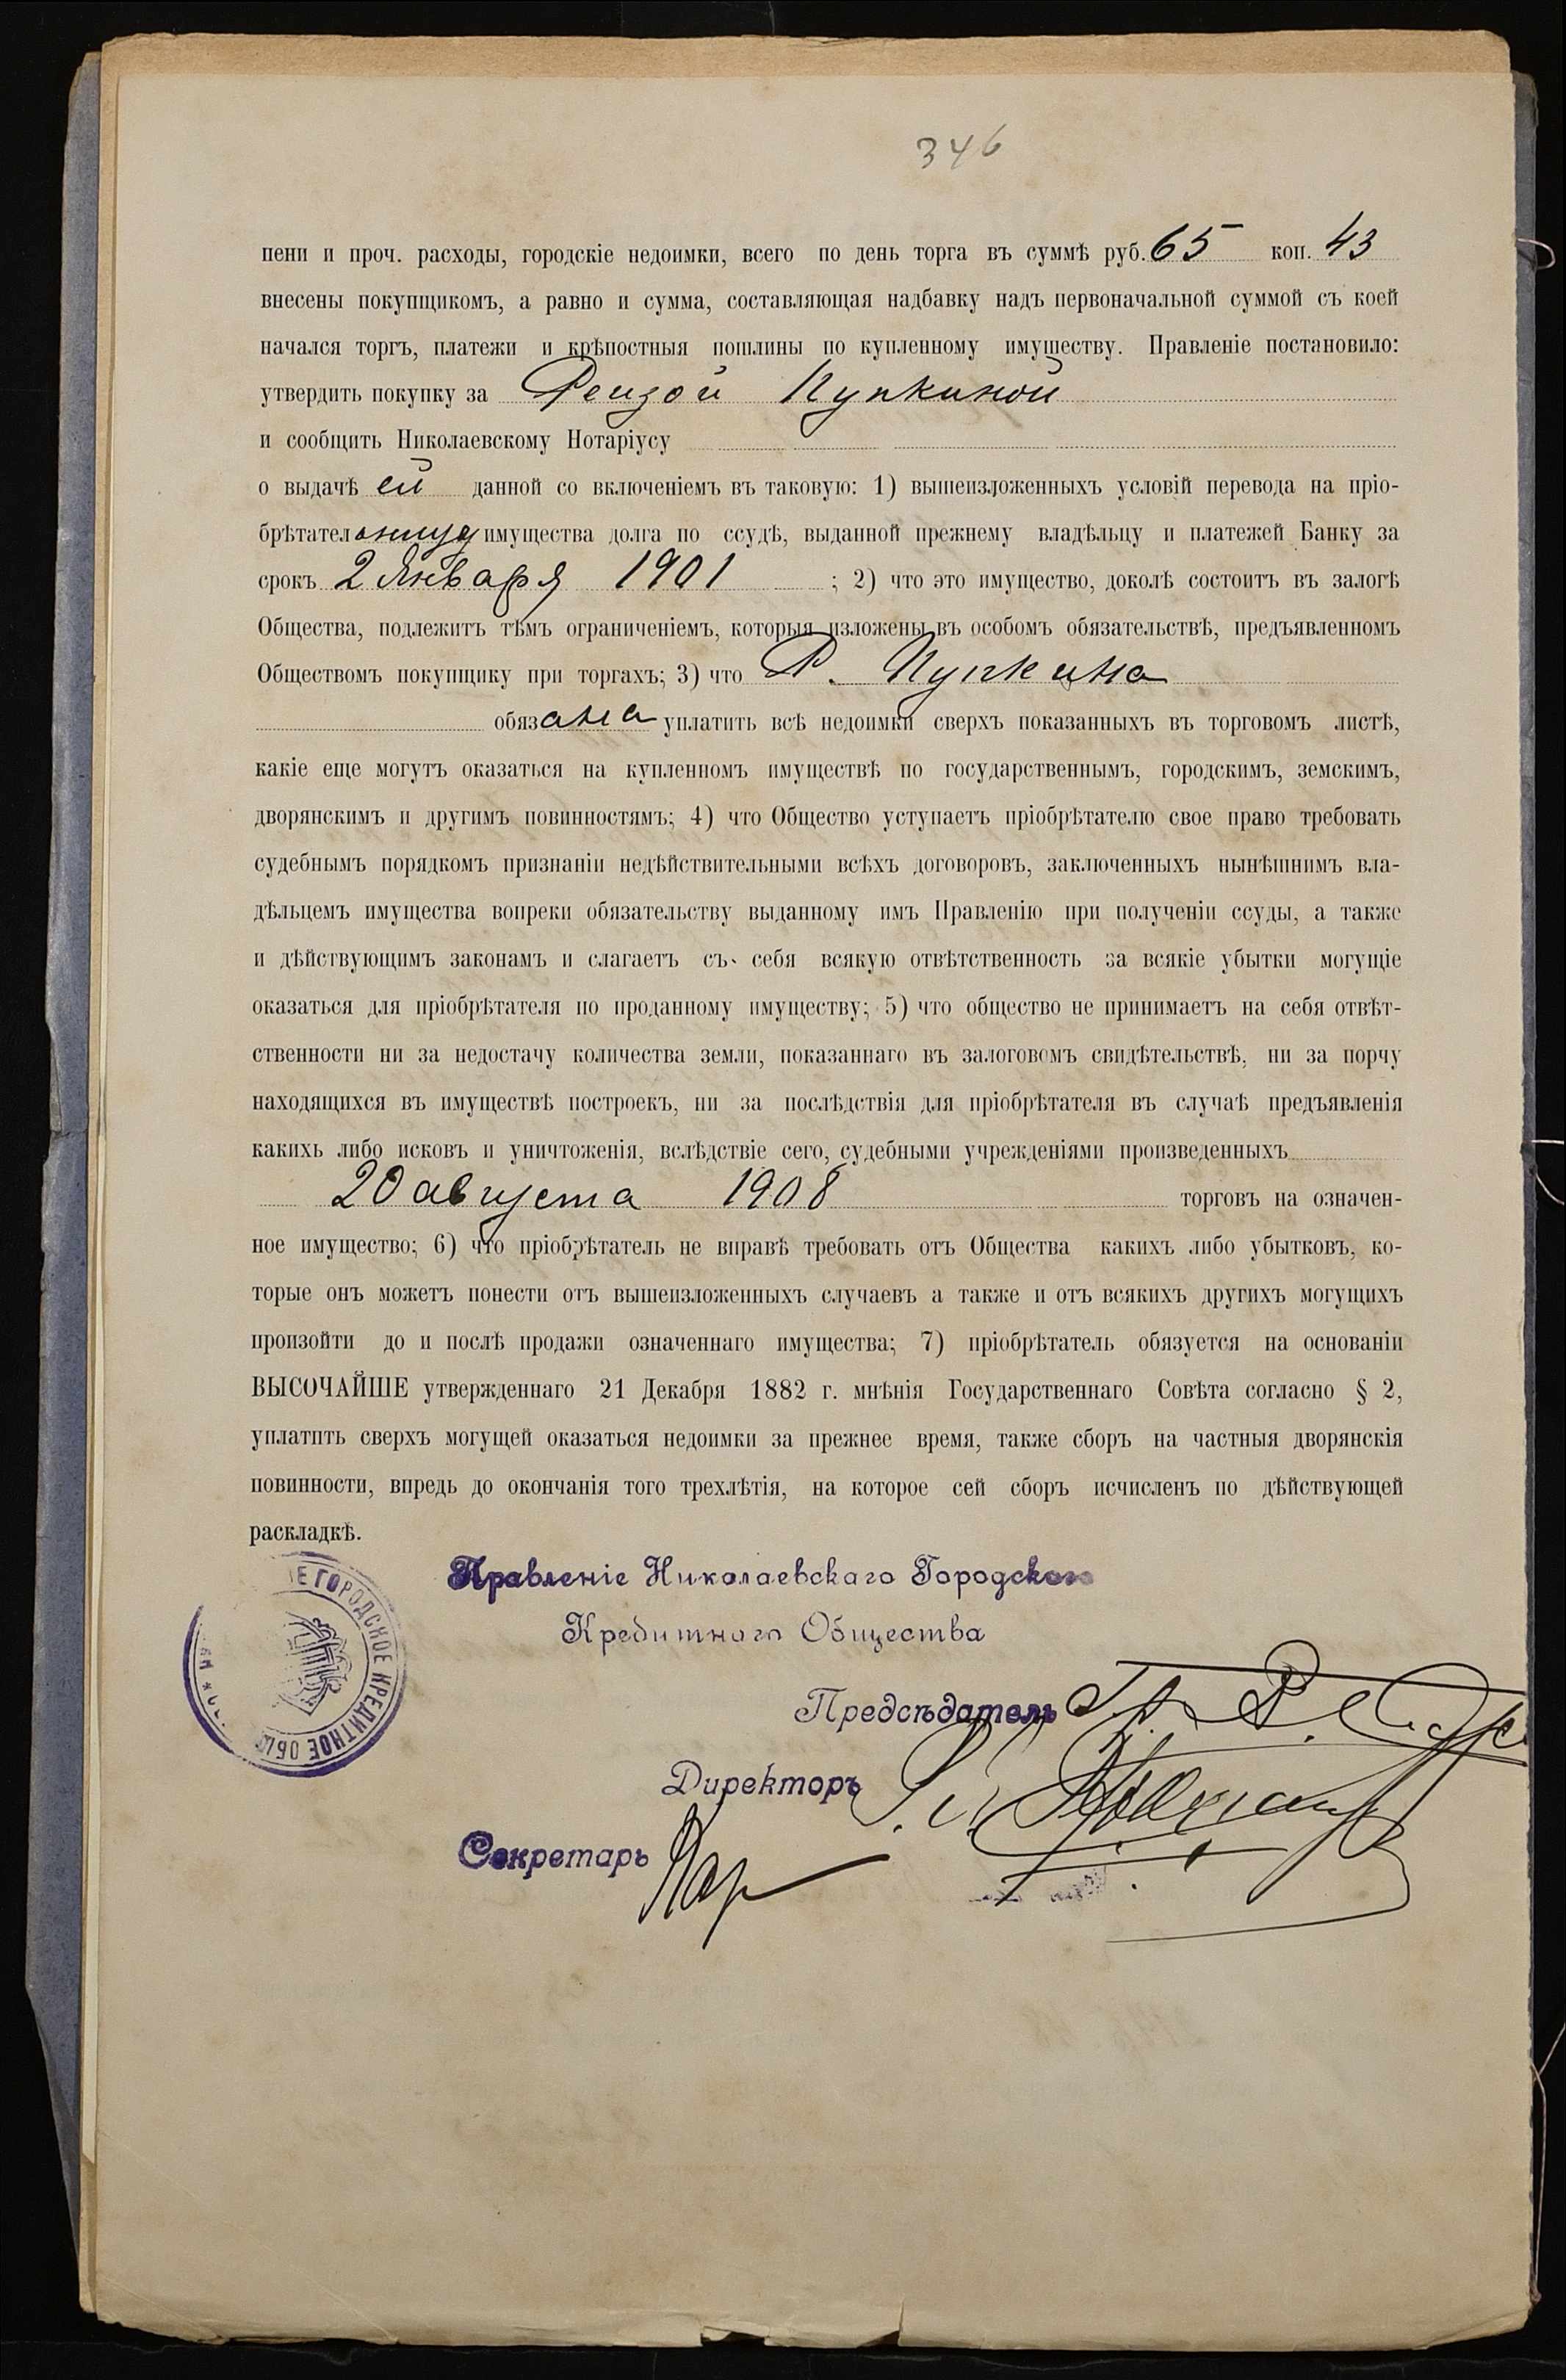 346
пени и проч. расходы, городскіе недоимки, всего по день торга въ суммѣ руб. 65 коп. 43
внесены покупщикомъ, а равно и сумма, составляющая надбавку надъ первоначальной суммой съ коей
начался торгъ, платежи и крѣпостныя пошлины по купленному имуществу. Правленіе постановило:
утвердить покупку за Рейзой Пупкиной
и сообщить Николаевскому Нотаріусу
о выдачѣ ей данной со включеніемъ въ таковую: 1) вышеизложенныхъ условій перевода на пріо-
брѣтательницу имущества долга по ссудѣ, выданной прежнему владѣльцу и платежей Банку за
срокъ 2 Января 1901 ; 2) что это имущество, доколѣ состоитъ въ залогѣ
Общества, подлежитъ тѣмъ ограниченіемъ, которыя изложены въ особомъ обязательствѣ, предъявленномъ
Обществомъ покупщику при торгахъ; 3) что Р. Пупкина
обязана уплатить всѣ недоимки сверхъ показанныхъ въ торговомъ листѣ,
какіе еще могутъ оказаться на купленномъ имуществѣ по государственнымъ, городскимъ, земскимъ,
дворянскимъ и другимъ повинностямъ; 4) что Общество уступаетъ пріобрѣтателю свое право требовать
судебнымъ порядкомъ признаніи недѣйствительными всѣхъ договоровъ, заключенныхъ нынѣшнимъ вла-
дѣльцемъ имущества вопреки обязательству выданному имъ Правленію при полученіи ссуды, а также
и дѣйствующимъ законамъ и слагаетъ съ себя всякую отвѣтственность за всякіе убытки могущіе
оказаться для пріобрѣтателя по проданному имуществу; 5) что общество не принимаетъ на себя отвѣт-
ственности ни за недостачу количества земли, показаннаго въ залоговомъ свидѣтельствѣ, ни за порчу
находящихся въ имуществѣ построекъ, ни за послѣдствія для пріобрѣтателя въ случаѣ предъявленія
какихъ либо исковъ и уничтоженія, вслѣдствіе сего, судебными учрежденіями произведенныхъ
20 августа 1908 торговъ на означен-
ное имущество; 6) что пріобрѣтатель не вправѣ требовать отъ Общества какихъ либо убытковъ, ко-
торые онъ можетъ понести отъ вышеизложенныхъ случаевъ а также и отъ всякихъ другихъ могущихъ
произойти до и послѣ продажи означеннаго имущества; 7) пріобрѣтатель обязуется на основаніи
ВЫСОЧАЙШЕ утвержденнаго 21 Декабря 1882 г. мнѣнія Государственнаго Совѣта согласно § 2,
уплатить сверхъ могущей оказаться недоимки за прежнее время, также сборъ на частныя дворянскія
повинности, впредь до окончанія того трехлѣтія, на которое сей сборъ исчисленъ по дѣйствующей
раскладкѣ.
Правленіе Николаевскаго Городского
Кредитнаго Общества
ГОРОДСКОЕ КРЕДИТНОЕ
Предсѣдатель
Директоръ
Секретарь